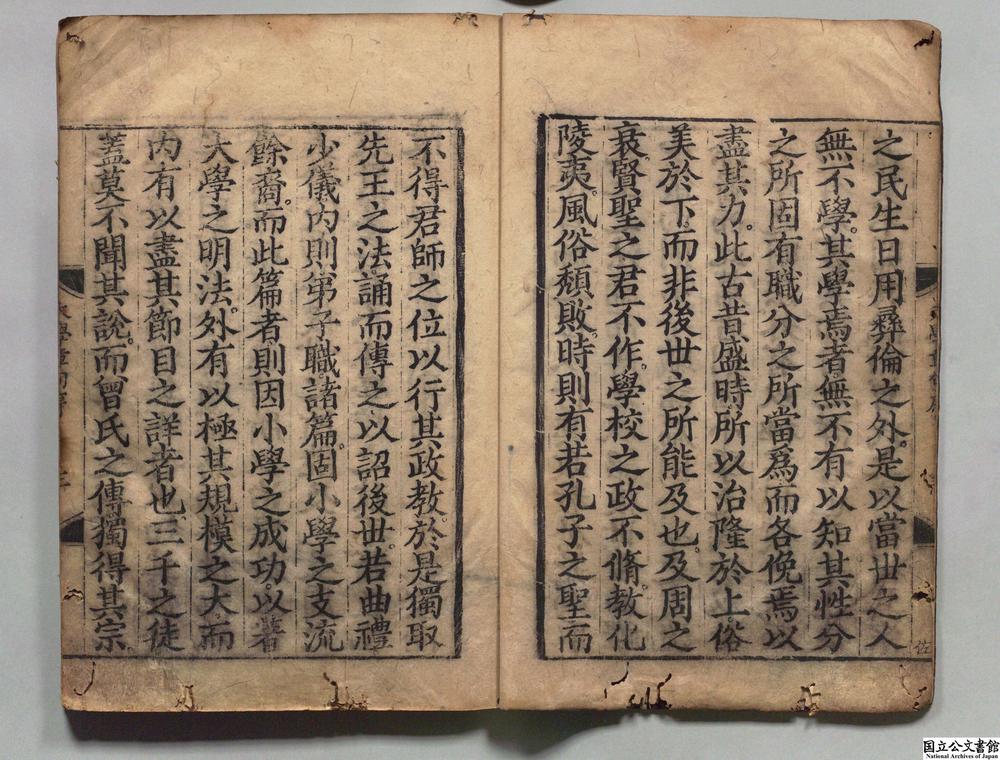 之民生日用彛倫之外。是以當世之人
無不學。其學焉者。無不有以知其性分
之所固有職分之所當爲而各俛焉以
盡其力。此古昔盛時所以治隆於上。俗
美於下。而非後世之所能及也。及周之
衰。賢聖之君不作。學校之政不脩。教化
陵夷。風俗頹敗。時則有若孔子之聖而
不得君師之位以行其政教。於是獨取
先王之法誦而傳之以詔後世。若曲禮
少儀内則弟子職諸篇。固小學之支流
餘裔。而此篇者則因小學之成功。以著
大學之明法。外有以極其規模之大而
内有以盡其節目之詳者也。三千之徒
蓋莫不聞其說。而曾氏之傳獨得其宗。
国立公文書館
National Archives of Japan